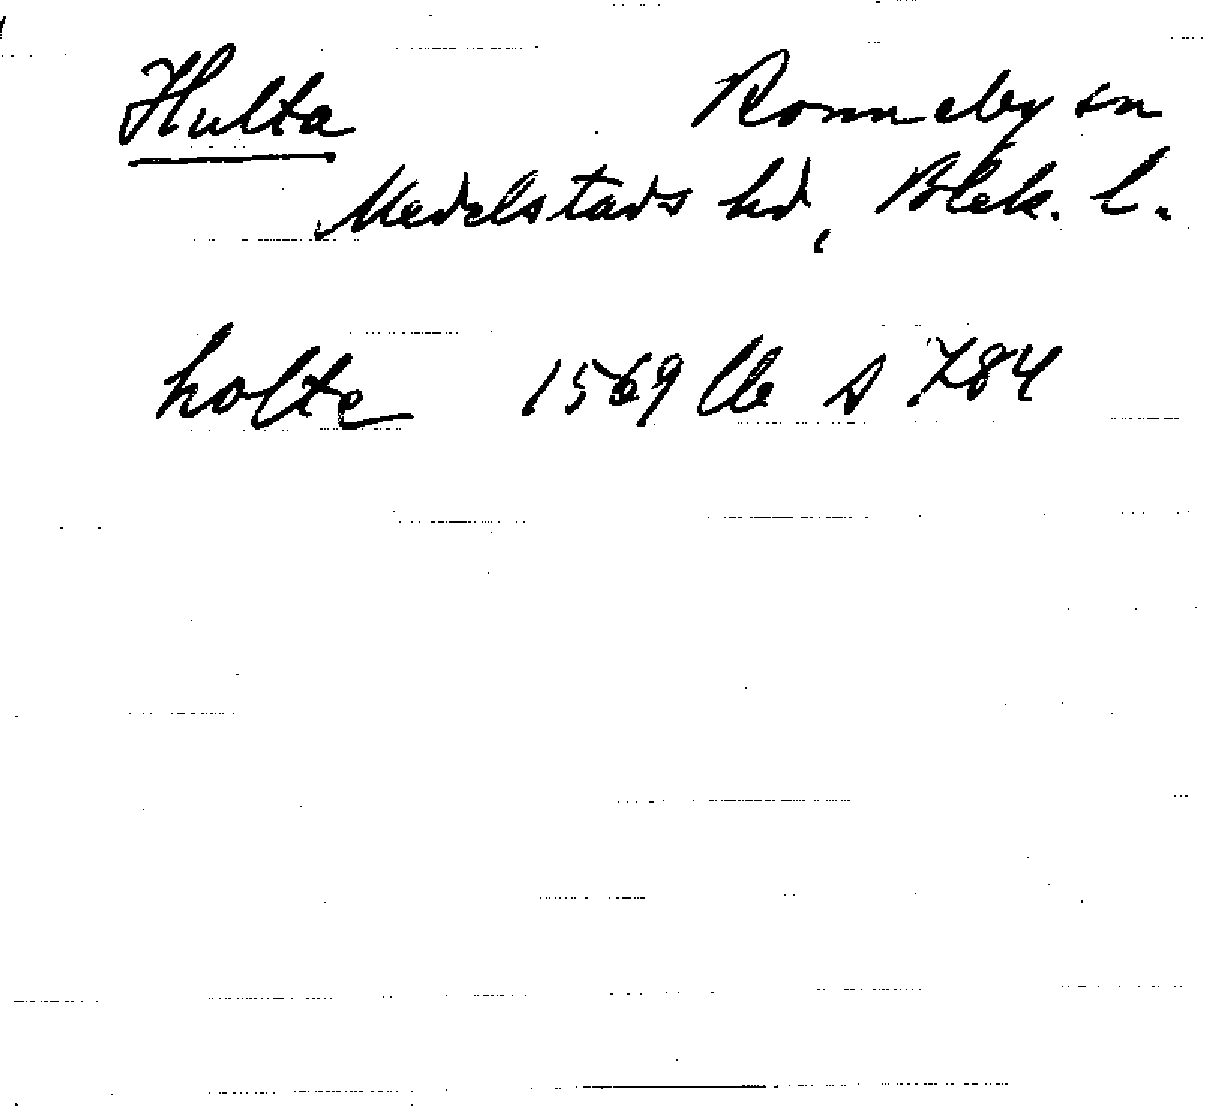 Hulta Ronneby sn
Medelstads hd, Blek. l.
holte 1569 Lle s 784